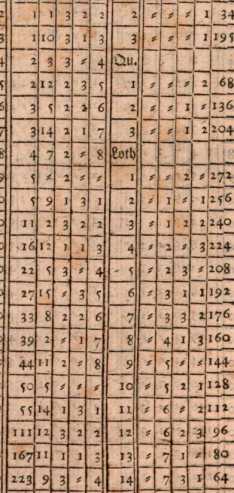 1 1 3 2 2 2 ⸗ ⸗ ⸗ 1 34
3 1 10 3 1 3 3 ⸗ ⸗ ⸗ 1 195
4 2 3 3 ⸗ 4 Qu.
5 2 12 2 3 5 1 ⸗ ⸗ ⸗ 2 68
6 3 5 2 2 6 2 ⸗ ⸗ 1 ⸗ 136
7 3 14 2 1 7 3 ⸗ ⸗ 1 2 204
8 4 7 2 ⸗ 8 Loth
9 5 ⸗ 2 ⸗ ⸗ 1 ⸗ ⸗ 2 ⸗ 272
0 5 9 1 3 1 2 ⸗ 1 ⸗ 1 256
0 11 2 3 2 2 3 ⸗ 1 2 2 240
0 16 12 1 1 3 4 ⸗ 2 ⸗ 3 224
0 22 5 3 ⸗ 4 5 ⸗ 2 3 ⸗ 208
0 27 15 ⸗ 3 5 6 ⸗ 3 1 1 192
0 33 8 2 2 6 7 ⸗ 3 3 2 176
0 39 2 ⸗ 1 7 8 ⸗ 4 1 3 160
0 44 11 2 ⸗ 8 9 ⸗ 5 ⸗ ⸗ 144
0 50 5 ⸗ ⸗ ⸗ 10 ⸗ 5 2 1 128
0 55 14 1 3 1 11 ⸗ 6 ⸗ 2 112
0 111 12 3 2 2 12 ⸗ 6 2 3 96
0 167 11 1 1 3 13 ⸗ 7 1 ⸗ 80
0 223 9 3 ⸗ 4 14 ⸗ 7 3 1 64